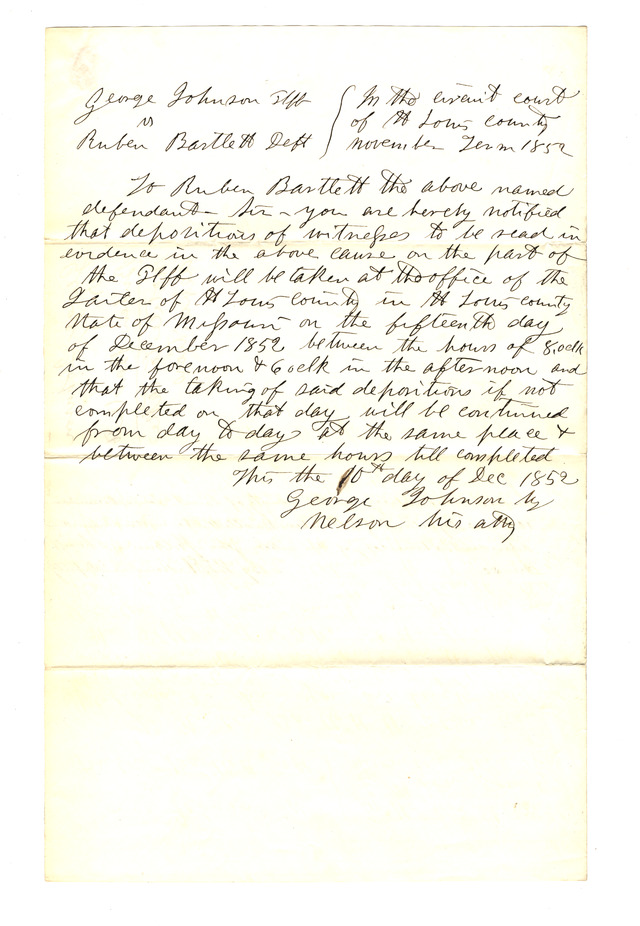 George Johnson Plff
vs
Ruben Bartlett Deft
In the circuit court
of St Louis county
november Term 1852
To Ruben Bartlett the above named
defendant – Sir – you are hereby notified
that depositions of witnesses to be read in
evidence in the above cause on the part of
the Plff will be taken at the office of the
Jailer of St Louis county in St Louis county
State of Missouri on the fifteenth day
of December 1852 between the hours of 8,oclk
in the forenoon & 6 oclk in the afternoon and
that the taking of said depositions if not
completed on that day will be continued
from day to day at the same place &
between the same hours till completed
This the 10th day of Dec 1852
George Johnson by
Nelson his atty